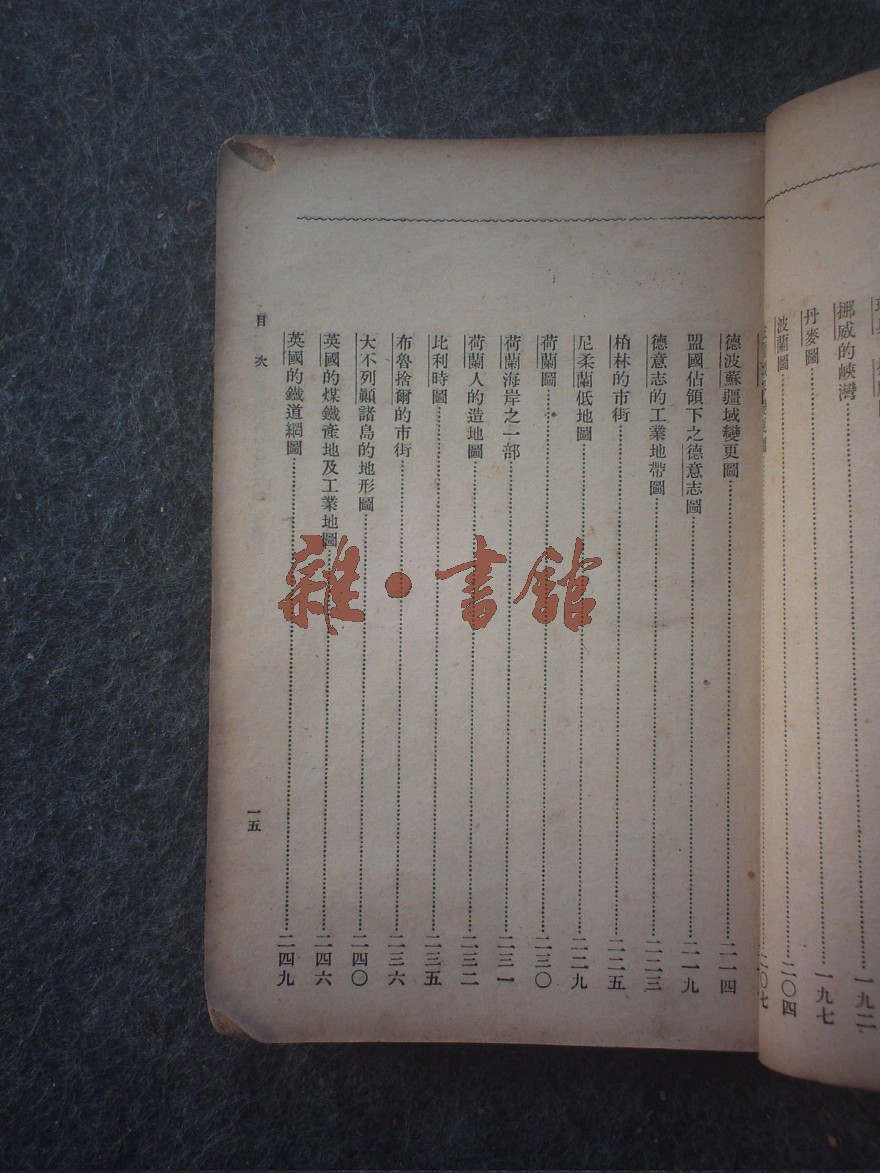 挪威的峽灣……一九二
丹麥圖……一九七
波蘭圖……二〇四
二〇七
德波蘇疆域變更圖……二一四
盟國佔領下之德意志圖……二一九
德意志的工業地帶圖……二二三
柏林的市街……二二五
尼柔蘭低地圖……二二九
荷蘭圖……二三〇
荷蘭海岸之一部……二三一
荷蘭人的造地圖……二三二
比利時圖……二三五
布魯捨爾的市街……二三六
大不列顚諸島的地形圖……二四〇
英國的煤鐵產地及工業地圖……二四六
英國的鐵道網圖……二四九
目次
一五
雜·書館